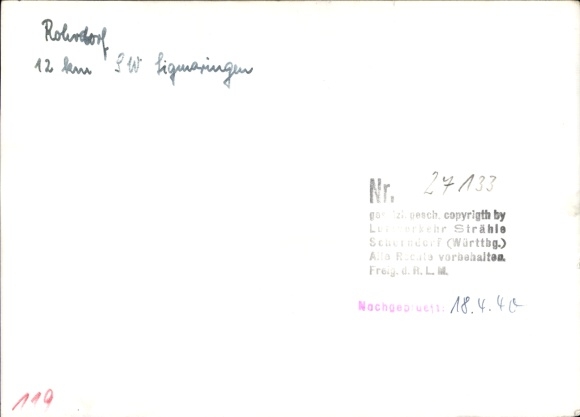 Rohrdorf
12 km SW Sigmaringen
Nr. 27133
gesetzl. gesch. copyrigth by
Luftverkehr Strähle
Schorndorf (Württbg.)
Alle Rechte vorbehalten.
Freig. d. R. L. M.
Nachgeprüft: 18.4.40
119